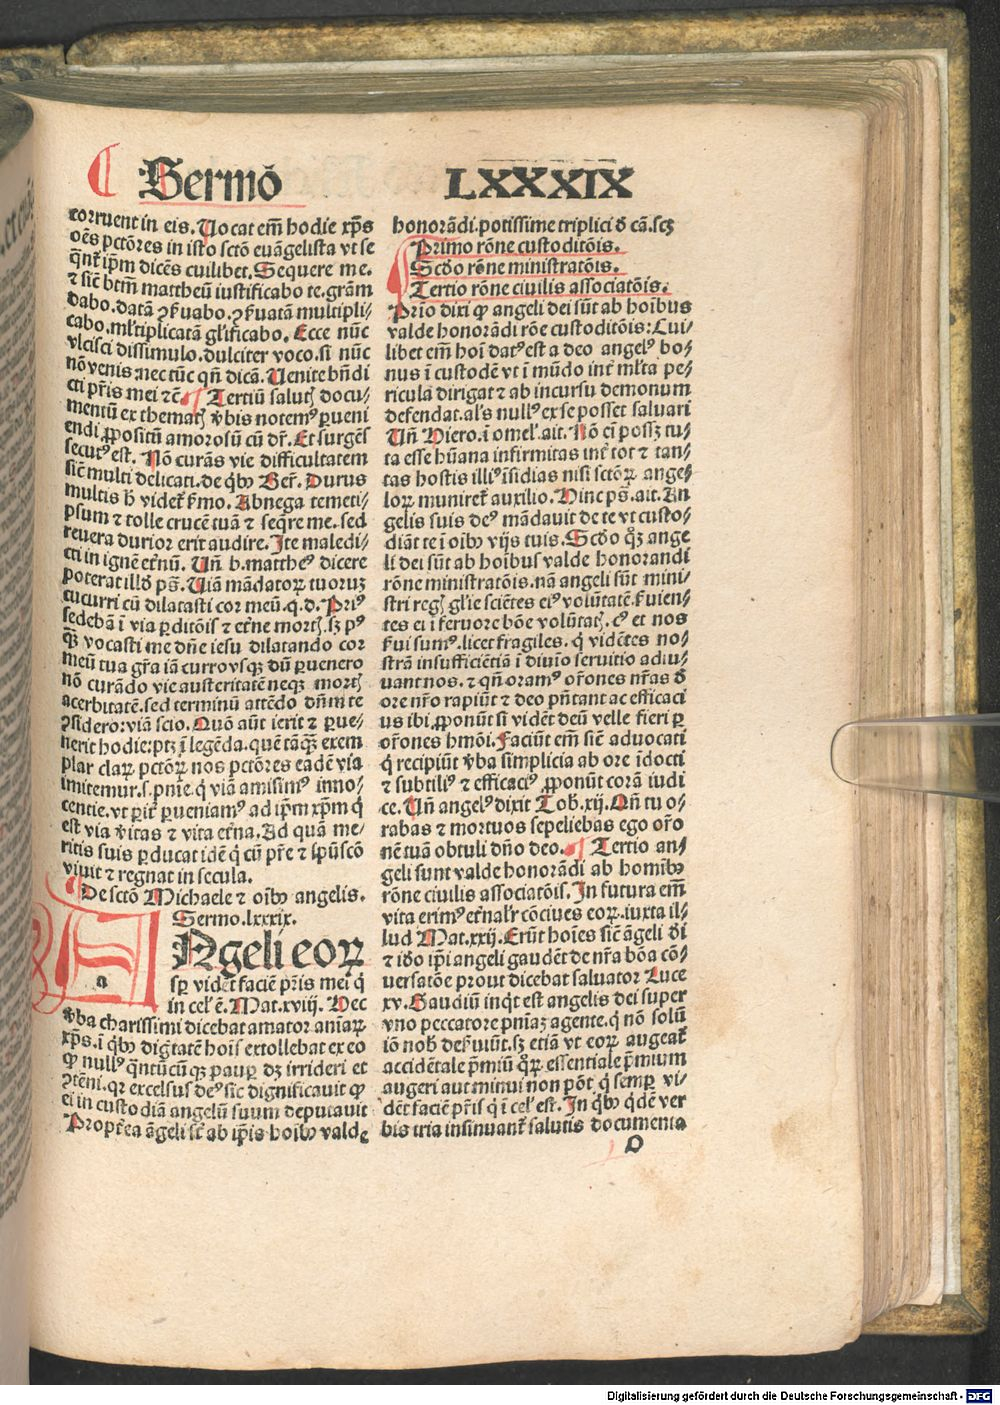 Sermō LXXXIX
corruent in eis. Uocat em̄ hodie xp̄s
oēs pctōres in isto sctō euāgelista vt se
qn̄t ip̄m dicēs cuilibet. Sequere me.
⁊ sic̄ btm̄ mattheū iustificabo te. grām
dabo. datā ꝯẜuabo. ꝯẜuatā multipli⸗
cabo. ml̄tiplicatā gl̄ificabo. Ecce nūc
vlcisci dissimulo. dulciter voco. si nūc
nō venis: nec tūc qn̄ dicā. Uenite bn̄di
cti pr̄is mei ⁊c̄. ¶ Tertiū salutꝭ docu⸗
mentū ex thematꝭ v̄bis notemꝰ ꝑueni
endi ꝓpositū amorosū cū dr̄. Et surgēs
secutꝰ est. Nō curās vie difficultatem
sic̄ multi delicati. de qͥbꝰ Ber̄. Durus
multis h̄ videt᷑ ẜmo. Abnega temeti⸗
psum ⁊ tolle crucē tuā ⁊ seqͣre me. sed
reuera durior erit audire. Ite maledi⸗
cti in ignē et̄nū. Un̄ b. mattheꝰ dicere
poterat illḋ ps̄. Uiā mādatoꝝ tuoruꝫ
cucurri cū dilatasti cor meū. q. d. Priꝰ
sedebā ī via ꝑditōis ⁊ et̄ne mortꝭ. sꝫ pꝰ
qͣꝫ vocasti me dn̄e iesu dilatando cor
meū tua gr̄a iā curro vsqꝫ dū ꝑuenero
nō curādo vie austeritatē neqꝫ mortꝭ
acerbitatē. sed terminū attēdo dn̄m te
ꝯsidero: viā scio. Quō aūt ierit ⁊ ꝑue⸗
nerit hodie: ptꝫ ī legēda. quē tāqͣꝫ exem
plar claꝝ pctōꝝ nos pctōres eadē via
imitemur. s. pn̄ie qͥ viā amisimꝰ inno⸗
centie. vt ꝑit᷑ ꝑueniamꝰ ad ip̄m xp̄m qͥ
est via v̄itas ⁊ vita et̄na. Ad quā me⸗
ritis suis ꝑducat idē qͥ cū pr̄e ⁊ sp̄ūscō
viuit ⁊ regnat in secula.
¶ De sctō Michaele ⁊ oībꝰ angelis.
Sermo. lxxxix.
ANgeli eoꝝ
sꝑ vidēt faciē pr̄is mei qͥ
in cel̄ ē. Mat. xviij. Hec
v̄ba charissimi dicebat amator anīaꝝ
xp̄s. ī qͥbꝰ dignitatē hoīs extollebat ex eo
qꝙ nullꝰ qͣntūcūqꝫ pauꝑ dꝫ irrideri et
ꝯtēni. qꝛ excelsus deꝰ sic dignificauit ꝙ
ei in custodiā angelū suum deputauit
Propt̄ea āgeli st̄ ab ip̄is hoībꝰ valde
honorādi. potissime triplici ḋ cā. scꝫ
¶ Primo rōne custoditōis.
Scḋo rōne ministratōis.
Tertio rōne ciuilis associatōis.
Prīo dixi ꝙ angeli dei sūt ab hoībus
valde honorādi rōne custoditōis: Cui⸗
libet em̄ hoī datꝰ est a deo angelꝰ bo⸗
nus ī custodē vt ī mūdo int᷑ ml̄ta pe⸗
ricula dirigat ⁊ ab incursu demonum
defendat. al̄s nullꝰ ex se posset saluari
Un̄ Hiero. ī omel̄. ait. Nō eī possꝫ tu⸗
ta esse hūana infirmitas int᷑ tot ⁊ tan⸗
tas hostis illiꝰ īsidias nisi sctōꝝ ange⸗
loꝝ muniret᷑ auxilio. Hinc ps̄. ait. An
gelis suis deꝰ mādauit de te vt custo⸗
diāt te ī oībꝰ vijs tuis. Scḋo qͦꝫ ange
li dei sūt ab hoībus valde honorandi
rōne ministratōis. nā angeli sūt mini⸗
stri regꝭ gl̄ie sciētes eiꝰ volūtatē. ẜuien⸗
tes ei ī feruore bōe volūtatꝭ. cꝰ et nos
ẜui sumꝰ. licet fragiles. qͥ vidētes no⸗
strā insufficiētiā ī diuīo seruitio adiu⸗
uant nos. ⁊ qn̄ oramꝰ or̄ones nr̄as ḋ
ore nr̄o rapiūt ⁊ deo pn̄tant ac efficaci
us ibi. ꝓponūt si vidēt deū velle fieri ꝑ
or̄ones hmōi. Faciūt em̄ sic̄ aduocati
qͥ recipiūt v̄ba simplicia ab ore idocti
⁊ subtiliꝰ ⁊ efficaciꝰ ꝓponūt corā iudi
ce. Un̄ angelꝰ dixit Tob. xij. Qn̄ tu o⸗
rabas ⁊ mortuos sepeliebas ego or̄o
nē tuā obtuli dn̄o deo. ¶ Tertio an⸗
geli sunt valde honorādi ab homībꝰ
rōne ciuilis associatōis. In futura em̄
vita erimꝰ et̄nalr̄ cōciues eoꝝ. iuxta il⸗
lud Mat. xxij. Erūt hoīes sic̄ āgeli ḋi
⁊ iḋo ip̄i angeli gaudēt de nr̄a bōa cō⸗
uersatōe prout dicebat saluator Luce
xv. Gaudiū inqͥt est angelis dei super
vno peccatore pn̄iaꝫ agente. qꝛ nō solū
iō nob̄ deẜuiūt. sꝫ etiā vt eoꝝ augeat᷑
accidētale p̄miū qͦꝝ essentiale p̄mium
augeri aut minui non pōt qꝛ semꝑ vi⸗
dēt faciē pr̄is qͥ ī cel̄ est. In qͥbꝰ qͥdē ver
bis tria insinuant᷑ salutis documenta
O
Digitalisierung gefördert durch die Deutsche Forschungsgemeinschaft - DFG